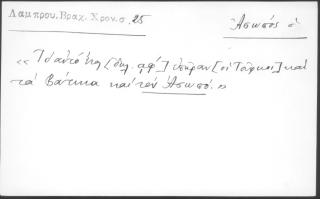 Λαμπρου. Βραχ. Χρον. σ. 25
Ἀσωπός ὁ
« Τῷ αὐτῷ ἔτει [δηλ. αφ΄] ἐπῆραν [οἱ Τοῦρκοι] καὶ
τὰ Βάτικα καὶ τὸν Ἀσωπό. »